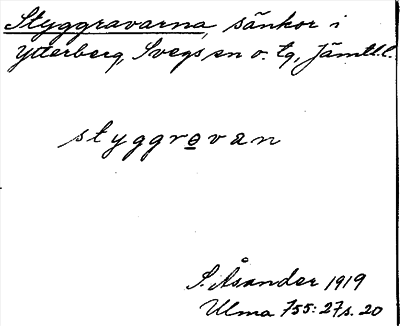 Styggravarna, sänkor i
Ytterberg, Svegs sn o. tg, Jämtl.l.
styggrøvan
S. Åsander 1919
Ulma 755:27 s. 20